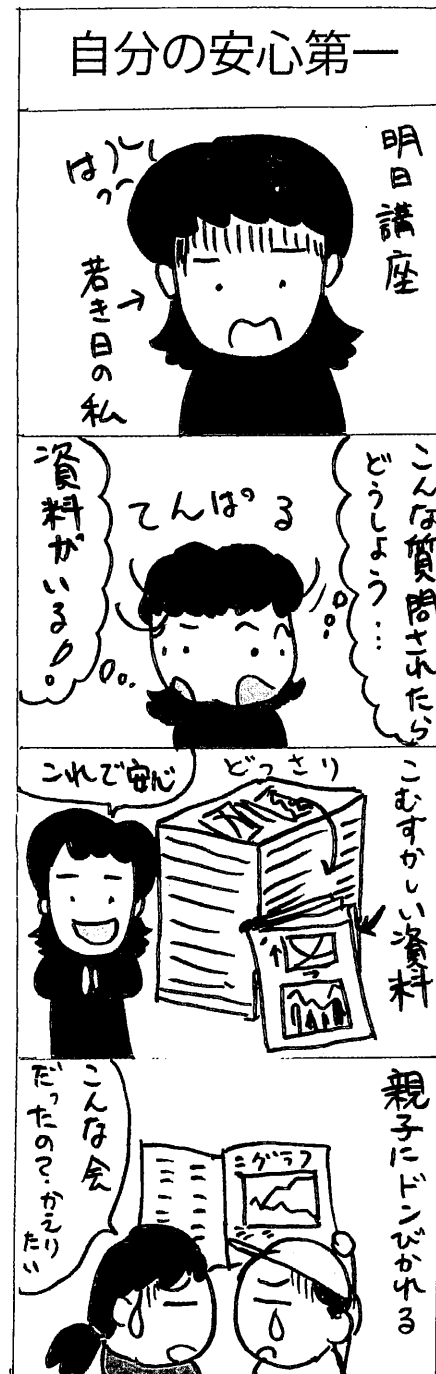 自分の安心第一
明日講座
はっ
若き日の私
こんな質問されたら
どうしよう…
てんぱる
資料がいる!
こむすかしい資料
どっさり
これで安心
親子にドンびかれる
グラフ
こんな会
だったの?かえり
たい